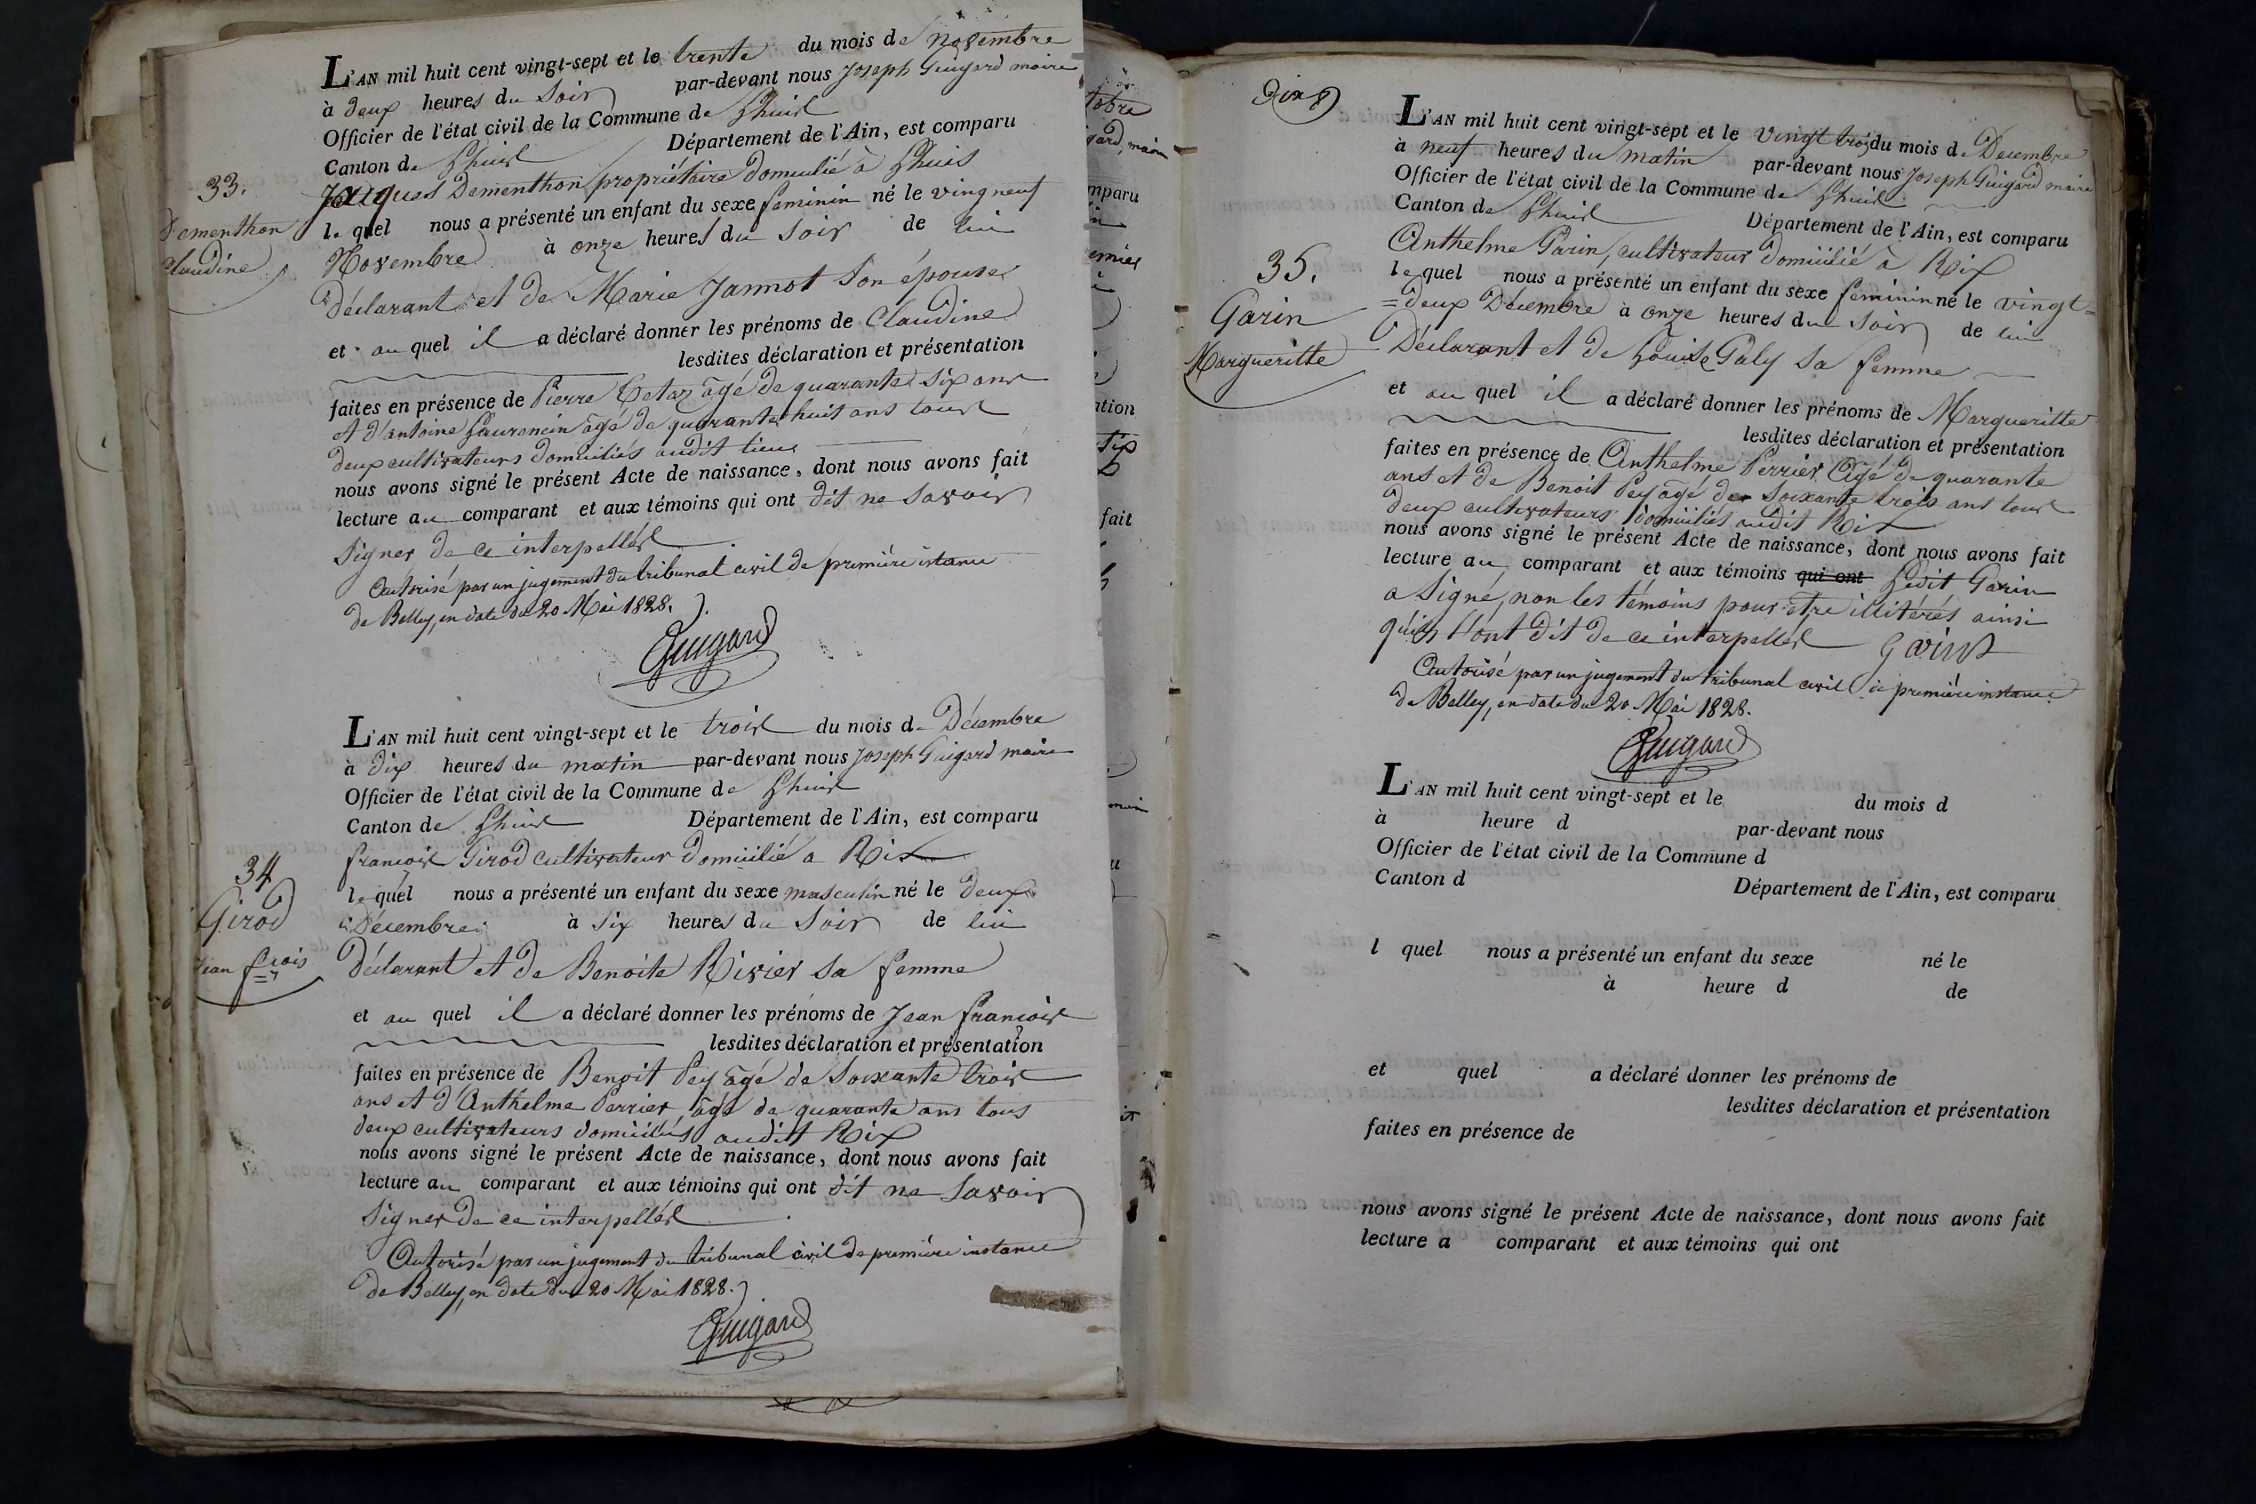 33.
Dementhon
Claudine
L'AN mil huit cent vingt-sept et le trente du mois de novembre
à deux heures du soir par-devant nous Joseph Guigard maire
Officier de l'état civil de la Commune de Lhuis
Canton de Lhuis Département de l'Ain, est comparu
Jacques Dementhon propriétaire domicilié à Lhuis
le quel nous a présenté un enfant du sexe feminin né le vingneuf
Novembre à onze heures du soir de lui
déclarant et de Marie Jannot son épouse
et au quel il a déclaré donner les prénoms de Claudine
lesdites déclaration et présentation
faites en présence de Pierre Cetaz âgé de quarante six ans
et d'antoine Laurencin âgé de quarante huit ans tous
deux cultivateurs domiciliés audit lieu
nous avons signé le présent Acte de naissance, dont nous avons fait
lecture au comparant et aux témoins qui ont dit ne savoir
signer de ce interpellés
Autorisé par un jugement du tribunal civil de première istance
de Belley, en date du 20 Mai 1828.
Guigard
34
Girod
Jean frcois
L'AN mil huit cent vingt-sept et le trois du mois de Décembre
à dix heures du matin par-devant nous Joseph Guigard maire
Officier de l'état civil de la Commune de Lhuis
Canton de Lhuis Département de l'Ain, est comparu
françois Girod cultivateur domicilié a Rix
le quel nous a présenté un enfant du sexe masculin né le deux
Décembre à six heures du soir de lui
Déclarant et de Benoite Rivier sa femme
et au quel il a déclaré donner les prénoms de Jean françois
lesdites déclaration et présentation
faites en présence de Benoit Pey âgé de soixante trois
ans et d'Anthelme Perrier âgé de quarante ans tous
deux cultivateurs domiciliés audit Rix
nous avons signé le présent Acte de naissance, dont nous avons fait
lecture au comparant et aux témoins qui ont dit ne savoir
signer de ce interpellés
Autorisé par un jugement du tribunal civil de première instance
de Belley, en date du 20 Mai 1828.
Guigard
tobre
maire
mparu
ation
six
fait
35.
Garin
Margueritte
L'AN mil huit cent vingt-sept et le vingt trois du mois de Décembre
à neuf heures du matin par-devant nous Joseph Guigard maire
Officier de l'état civil de la Commune de Lhuis
Canton de Lhuis Département de l'Ain, est comparu
Anthelme Garin, cultivateur domicilié à Rix
le quel nous a présenté un enfant du sexe feminin né le vingt=
=deux Décembre à onze heures du soir de lui
Déclarant et de Louise Galy sa femme
et au quel il a déclaré donner les prénoms de Margueritte
lesdites déclaration et présentation
faites en présence de Anthelme Perrier âgé de quarante
ans et de Benoit Pey âgé de soixante trois ans tous
deux cultivateurs domiciliés audit Rix
nous avons signé le présent Acte de naissance, dont nous avons fait
lecture au comparant et aux témoins qui ont Ledit Garin
a signé, non les témoins pour être illitérés ainsi
qu'ils l'ont dit de ce interpellés Garin
Autorisé par un jugement du tribunal civil de première instance
de Belley, en date du 20 Mai 1828.
Guigard
L'AN mil huit cent vingt-sept et le du mois d
à heure d par-devant nous
Officier de l'état civil de la Commune d
Canton d Département de l'Ain, est comparu
l quel nous a présenté un enfant du sexe né le
à heure d de
et quel a déclaré donner les prénoms de
lesdites déclaration et présentation
faites en présence de
nous avons signé le présent Acte de naissance, dont nous avons fait
lecture a comparant et aux témoins qui ont